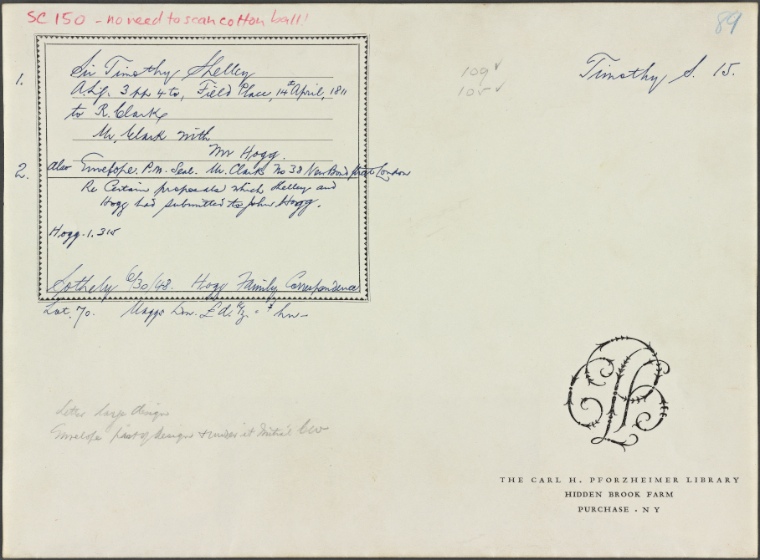 SC 150 - no need to scan cotton ball!
89
Timothy S. 15.
109 ✓
105 ✓
1. Sir Timothy Shelley
A.L.S. 3 pp 4to, Field Place, 14th April, 1811
to R. Clark,
Mr. Clark with
Mr Hogg.
2. also Envelope. P.M. Seal. Mr. Clark No 38 New Bond Street London
Re Certain proposals which Shelley and
Hogg had submitted to John Hogg.
Hogg-1.315
Sotheby 6/30/48. Hogg Family Correspondence
Lot. 70. Maggs
Letter large
Envelope
THE CARL H. PFORZHEIMER LIBRARY
HIDDEN BROOK FARM
PURCHASE · NY